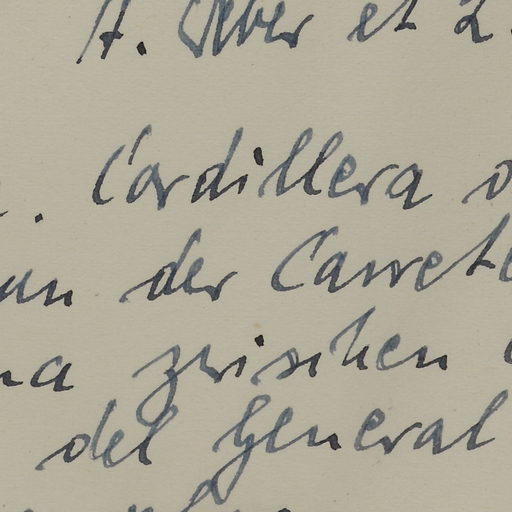 A. Weber et 2.
Cordillera
an der Carrete
na zwischen
del General